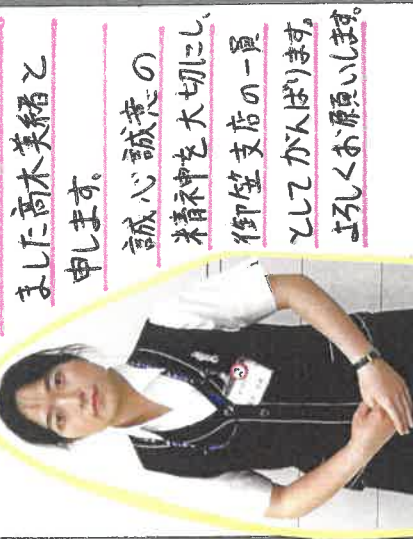 ました髙木美緒と
申します。
誠心誠意の
精神を大切にし、
御笠支店の一員
としてがんばります。
よろしくお願いします。